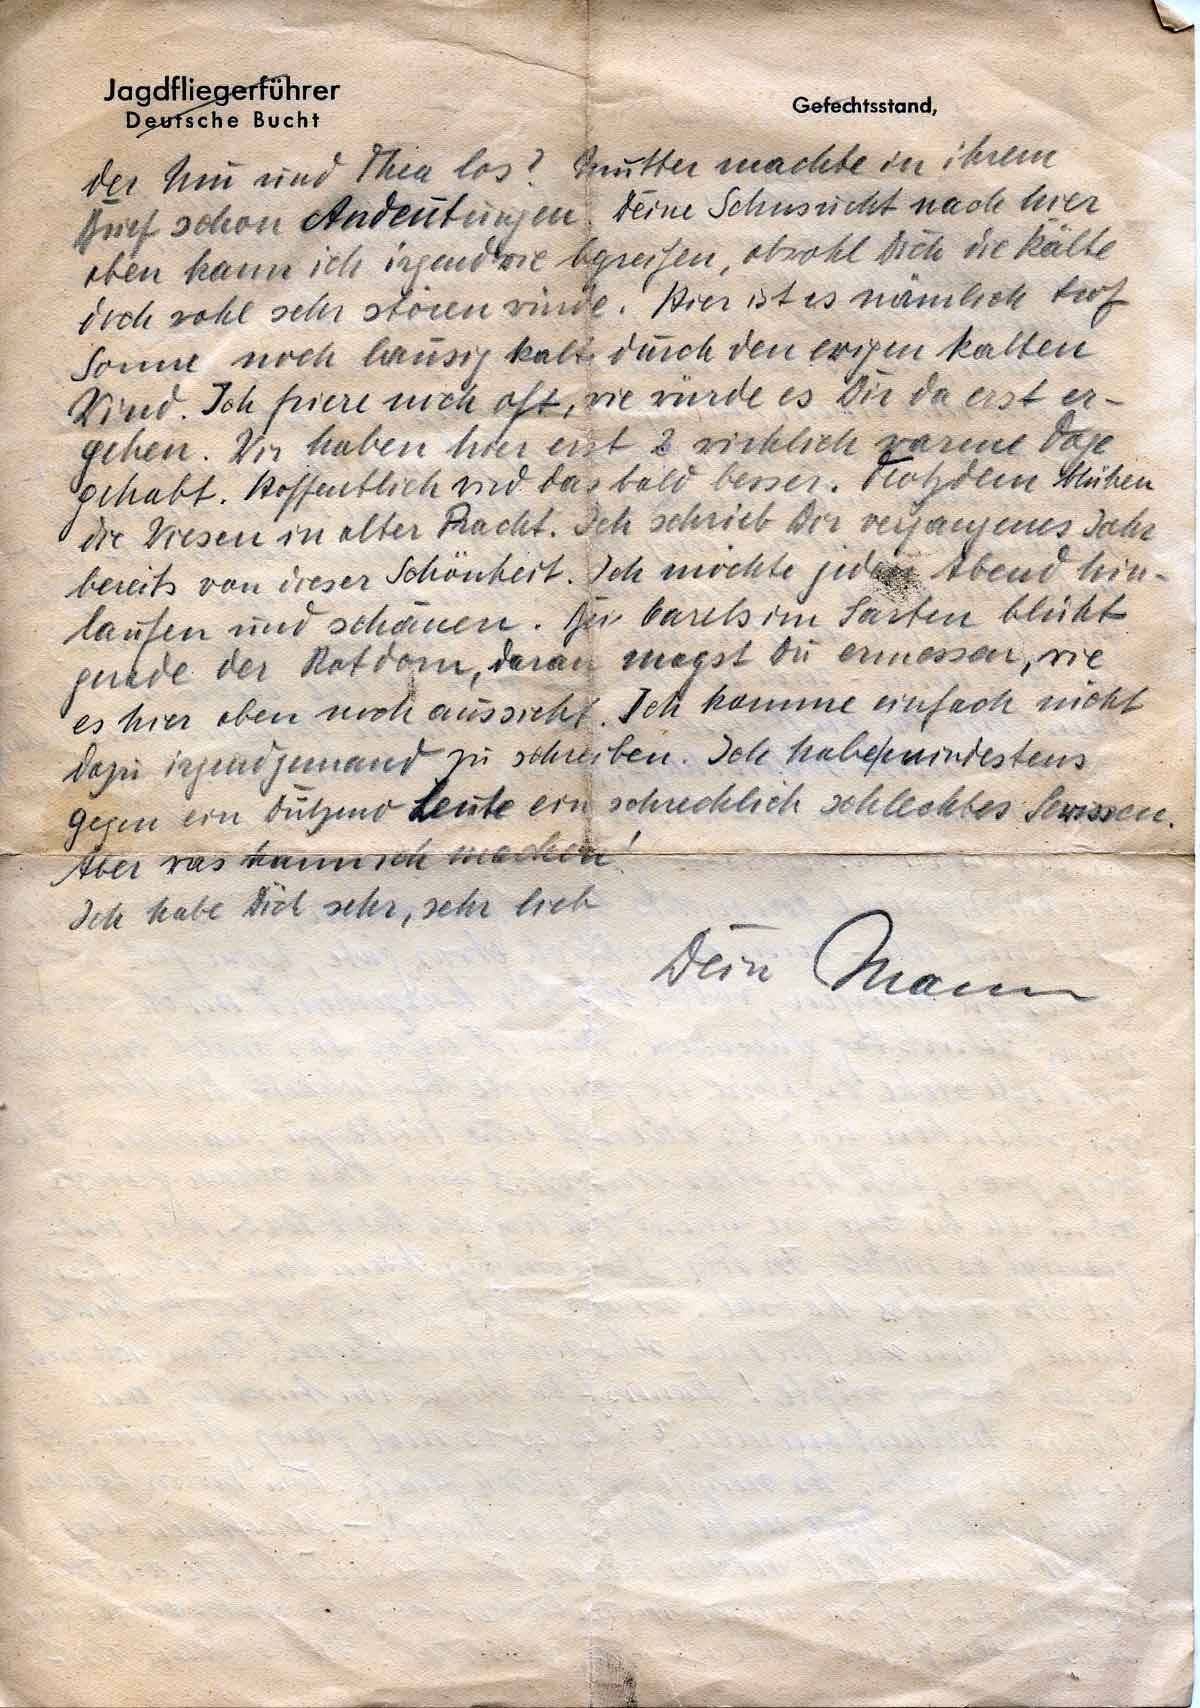 Jagdfliegerführer
Deutsche Bucht
Gefechtsstand,
der und Thea los? Mutter machte in ihrem
Brief schon Andeutungen. Deine Sehnsucht nach hier
oben kann ich irgendwie begreifen, obwohl Dich die Kälte
doch wohl sehr stören würde. Hier ist es nämlich trotz
Sonne noch lausig kalt durch den ewigen kalten
Wind. Ich friere noch oft, wie würde es Dir da erst er-
gehen. Wir haben hier erst 2 wirklich warme Tage
gehabt. Hoffentlich wird das bald besser. Trotzdem blühen
die Wiesen in alter Pracht. Ich schrieb Dir vergangenes Jahr
bereits von dieser Schönheit. Ich möchte jeden Abend hin-
laufen und schauen. Bei Carels im Garten blüht
gerade der Rotdorn, daran magst Du ermessen, wie
es hier oben noch aussieht. Ich komme einfach nicht
dazu irgendjemand zu schreiben. Ich habe mindestens
gegen ein Dutzend Leute ein schrecklich schlechtes Gewissen.
Aber was kann ich machen!
Ich habe Dich sehr, sehr lieb
Dein Mann